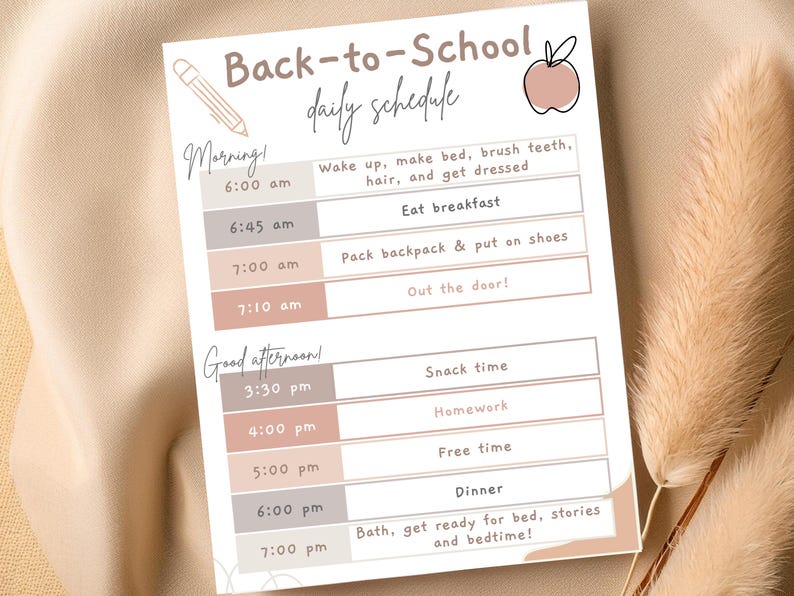 Back-to-School
daily schedule
Morning!
6:00 am Wake up, make bed, brush teeth,
hair, and get dressed
6:45 am Eat breakfast
7:00 am Pack backpack & put on shoes
7:10 am Out the door!
Good afternoon!
3:30 pm Snack time
4:00 pm Homework
5:00 pm Free time
6:00 pm Dinner
7:00 pm Bath, get ready for bed, stories
and bedtime!